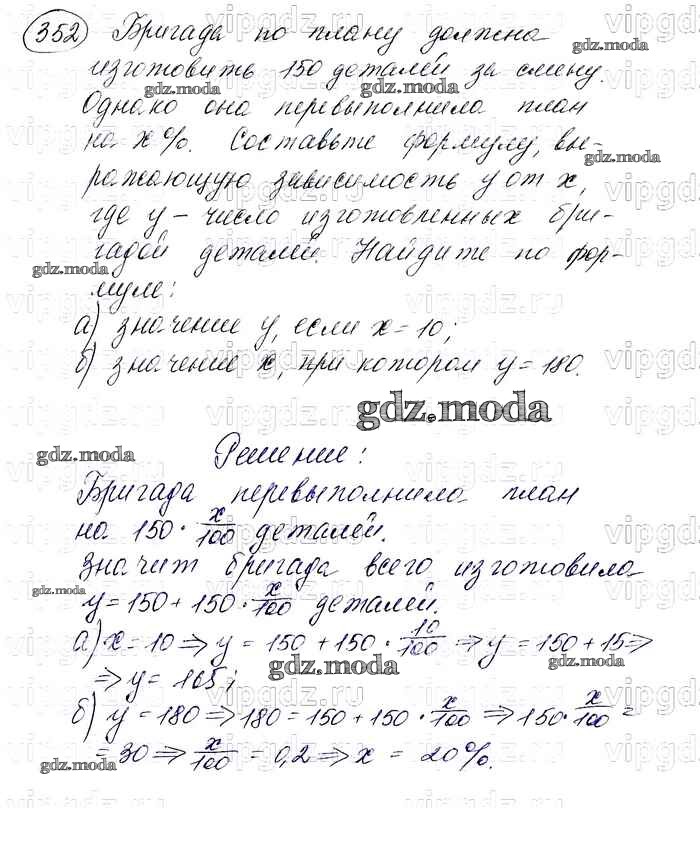 352 Бригада по плану должна
изготовить 150 деталей за смену.
Однако она перевыполнила план
на x%. Составьте формулу, вы-
ражающую зависимость y от x,
где y – число изготовленных бри-
гадой деталей. Найдите по фор-
муле:
а) значение y, если x = 10;
б) значение x, при котором y = 180.
gdz.moda
Решение:
Бригада перевыполнила план
на 150 · x/100 деталей.
Значит бригада всего изготовила
y = 150 + 150 · x/100 деталей.
а) x = 10 ⇒ y = 150 + 150 · 10/100 ⇒ y = 150 + 15 ⇒
⇒ y = 165;
б) y = 180 ⇒ 180 = 150 + 150 · x/100 ⇒ 150 · x/100 =
= 30 ⇒ x/100 = 0,2 ⇒ x = 20%.